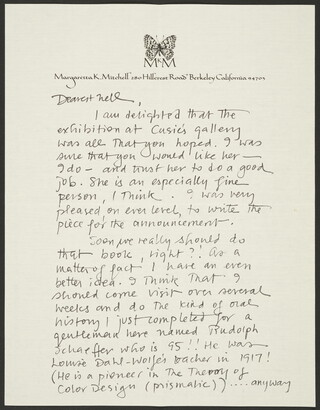 M M
Margaretta K. Mitchell 280 Hillcrest Road Berkeley California 94705
Dearest Nell,
I am delighted that the
exhibition at Cusie's gallery
was all that you hoped. I was
sure that you would like her —
I do — and trust her to do a good
job. She is an especially fine
person, I think. I was very
pleased on ever level, to write the
piece for the announcement.
Soon we really should do
that book, right?! As a
matter of fact I have an even
better idea. I think that I
should come visit over several
weeks and do the kind of oral
history I just completed for a
gentleman here named Rudolph
Schaeffer who is 95!! He was
Louise Dahl-Wolfe's teacher in 1917!
(He is a pioneer in the Theory of
Color Design (prismatic)) .... anyway